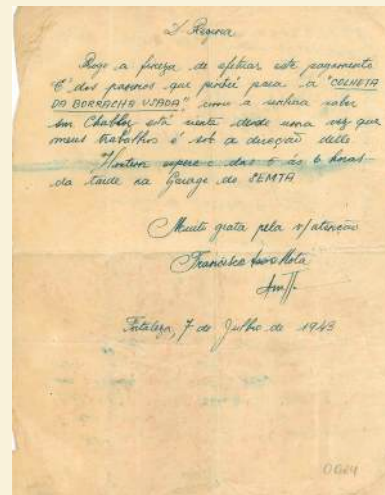 D. Regina
Rogo a fineza de efetuar este pagamento
É dos pannos que pintei para a "COLHEITA
DA BORRACHA USADA" como a senhora sabe
snr Chabloz está ciente desde uma vez que
meus trabalhos é sob a direção delle
Hontem esperei das 5 ás 6 horas
da tarde na Garage do SEMTA
Muito grata pela v/atenção
Francisco Mota
Fortaleza, 7 de Julho de 1943